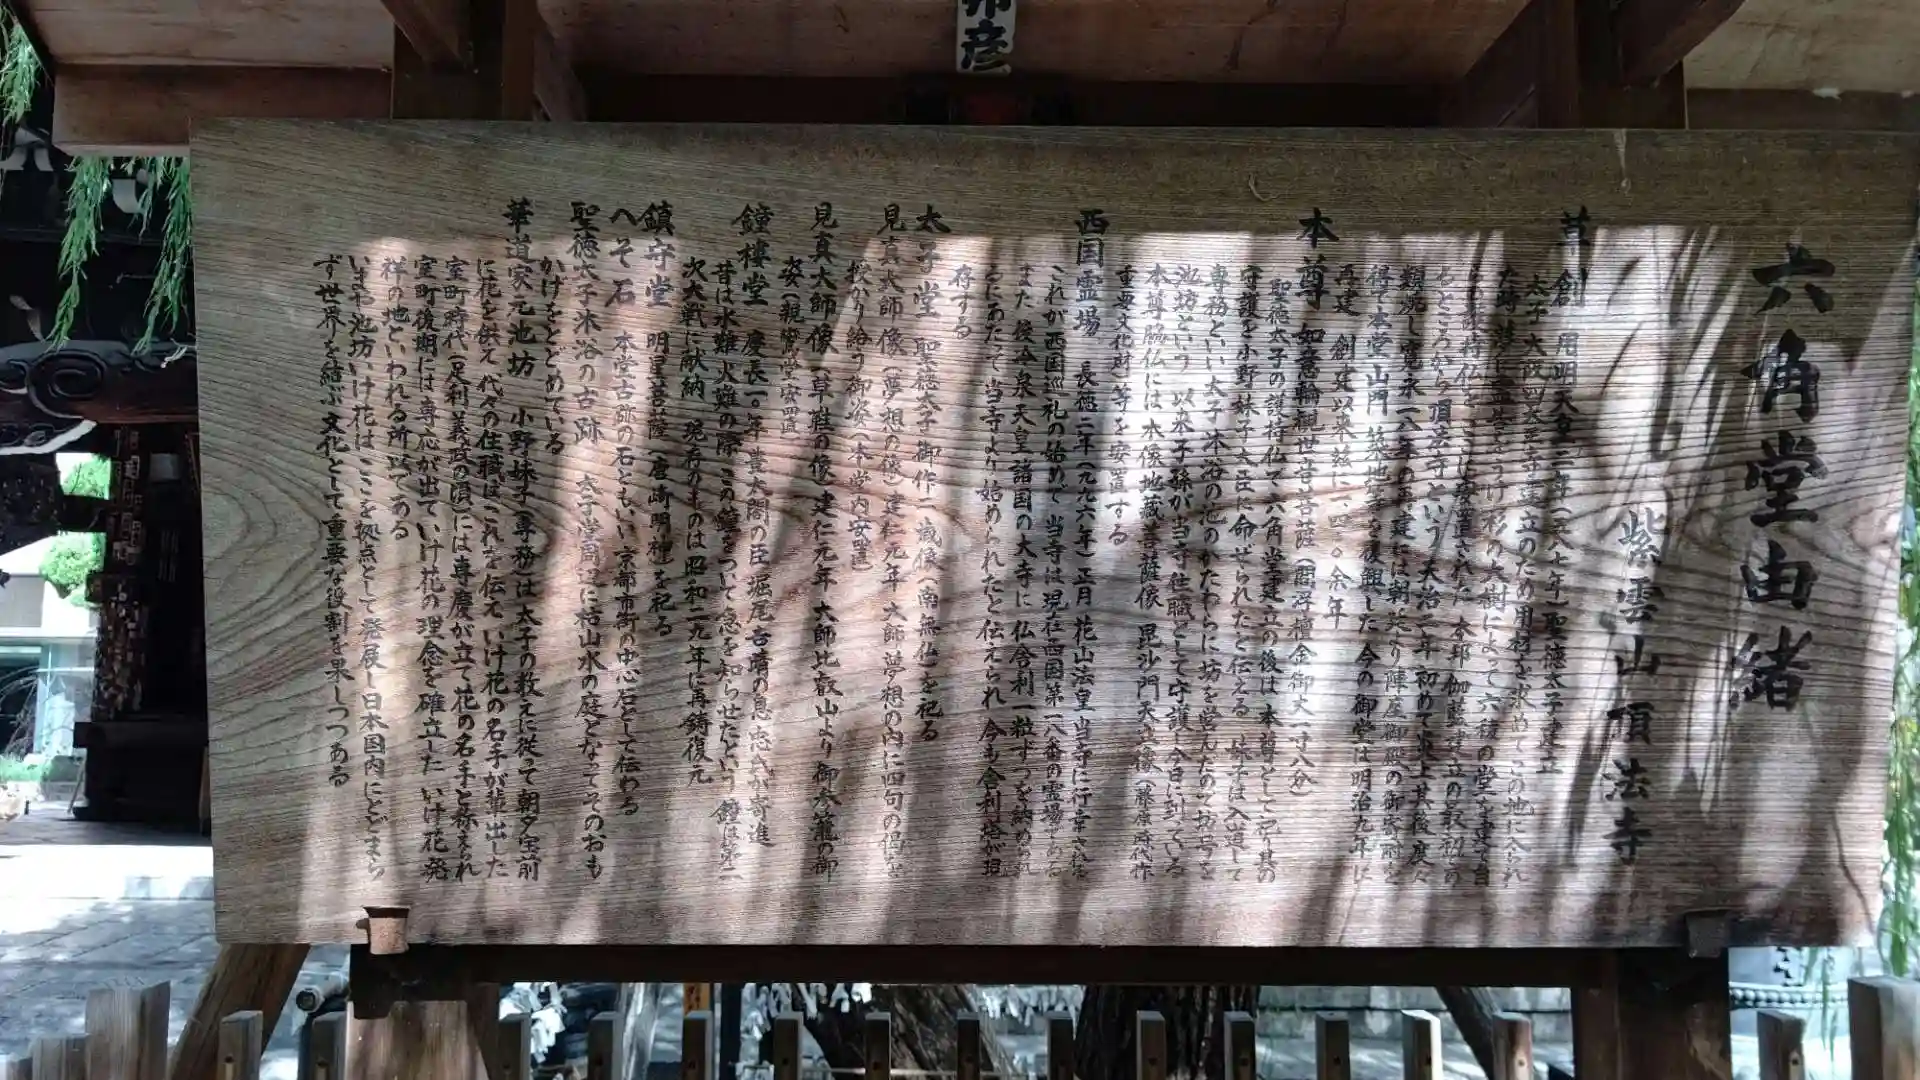 弥彦
六角堂由緒
紫雲山頂法寺
草創 用明天皇二年(五八七年)聖徳太子建立
太子 大阪四天王寺建立のため用材を求めてこの地に来られ
た時 夢
うけ 杉の大樹によって六稜の堂を建て自
護持仏 安置された 本邦伽藍建立の最初の
ところから頂法寺という 大治二年 初めて炎上其後度々
類焼し寛永一八年の再建には朝廷より陣座御殿の御寄附を
得て本堂山門 築地 を復興した 今の御堂は明治九年に
再建 創建以来茲に一、四〇余年
本尊 如意輪観世音菩薩(閻浮檀金御丈一寸八分)
聖徳太子の護持仏で六角堂建立の後は本尊として祀り其の
守護を小野妹子大臣に命ぜられたと伝える 妹子は入道して
専務といい 太子 沐浴の池のかたわらに坊を営んだので坊号を
池坊という 以来子孫が当寺住職として守護 今日に到っている
本尊脇仏には 木像地蔵菩薩像 毘沙門天立像(藤原時代作
重要文化財)等を安置する
西国霊場 長徳二年(九九六年)正月 花山法皇 当寺に行幸され
これが西国巡礼の始めで 当寺は現在西国第一八番の霊場である
また 後冷泉天皇諸国の大寺に仏舎利一粒ずつを納められ
るにあたって 当寺より始められたと伝えられ 今も舎利塔が現
存する
太子堂 聖徳太子御作二歳像(南無仏)を祀る
見真大師像(夢想の像)建仁元年 大師夢想の内に四句の偈を
授かり給う御姿(本堂内安置)
見真大師像(草鞋の像)建仁元年 大師比叡山より御参籠の御
姿(親鸞堂安置)
鐘樓堂 慶長一〇年 豊太閤の臣堀尾吉晴の息 忠氏が寄進
昔は水難 火難の際 この鐘をついて急を知らせたという 鐘は第二
次大戦に献納 現存のものは昭和二九年に再鋳復元
鎮守堂 明星菩薩(唐崎明神)を祀る
へそ石 本堂古跡の石ともいい 京都市街の中心石として伝わる
聖徳太子沐浴の古跡 太子堂周辺に枯山水の庭となってそのおも
かげをとどめている
華道家元池坊 小野妹子(専務)は太子の教えに従って朝夕宝前
に花を供え 代々の住職はこれを伝え いけ花の名手が輩出した
室町時代(足利義政の頃)には専慶が立て花の名手と称えられ
室町後期には専応が出ていけ花の理念を確立した いけ花発
祥の地といわれる所以である
いまや池坊いけ花は ここを拠点として発展し日本国内にとどまら
ず世界を結ぶ文化として重要な役割を果しつつある